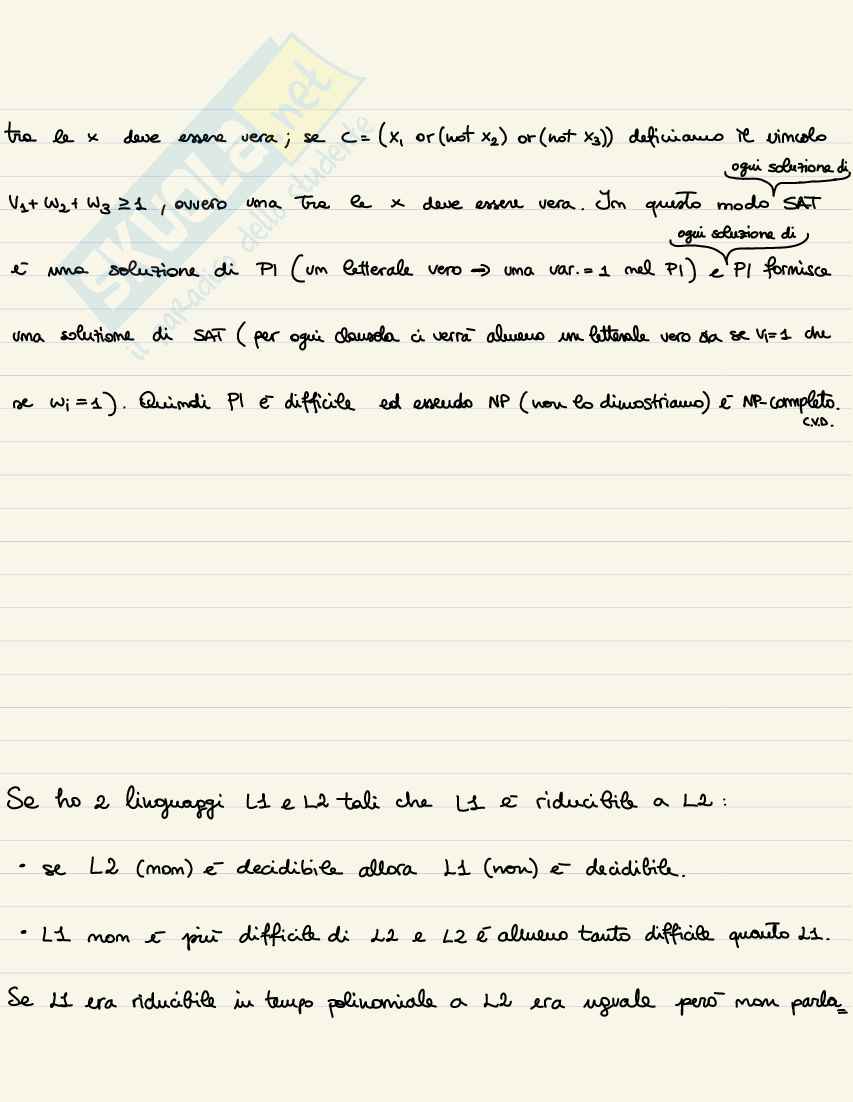 SKUOLA.net
il paradiso dello studente
tra le x deve essere vera; se C = (x₁ or (not x₂) or (not x₃)) definiamo il vincolo
ogni soluzione di
V₁ + W₂ + W₃ ≥ 1, ovvero una tra le x deve essere vera. In questo modo SAT
ogni soluzione di
è una soluzione di PI (un letterale vero → una var. = 1 nel PI) e PI fornisce
una soluzione di SAT (per ogni clausola ci verrà almeno un letterale vero sia se Vi = 1 che
se Wi = 1). Quindi PI è difficile ed essendo NP (non lo dimostriamo) è NP-completo.
C.V.D.
Se ho 2 linguaggi L1 e L2 tali che L1 è riducibile a L2:
• se L2 (non) è decidibile allora L1 (non) è decidibile.
• L1 non è più difficile di L2 e L2 è almeno tanto difficile quanto L1.
Se L1 era riducibile in tempo polinomiale a L2 era uguale però non parla=